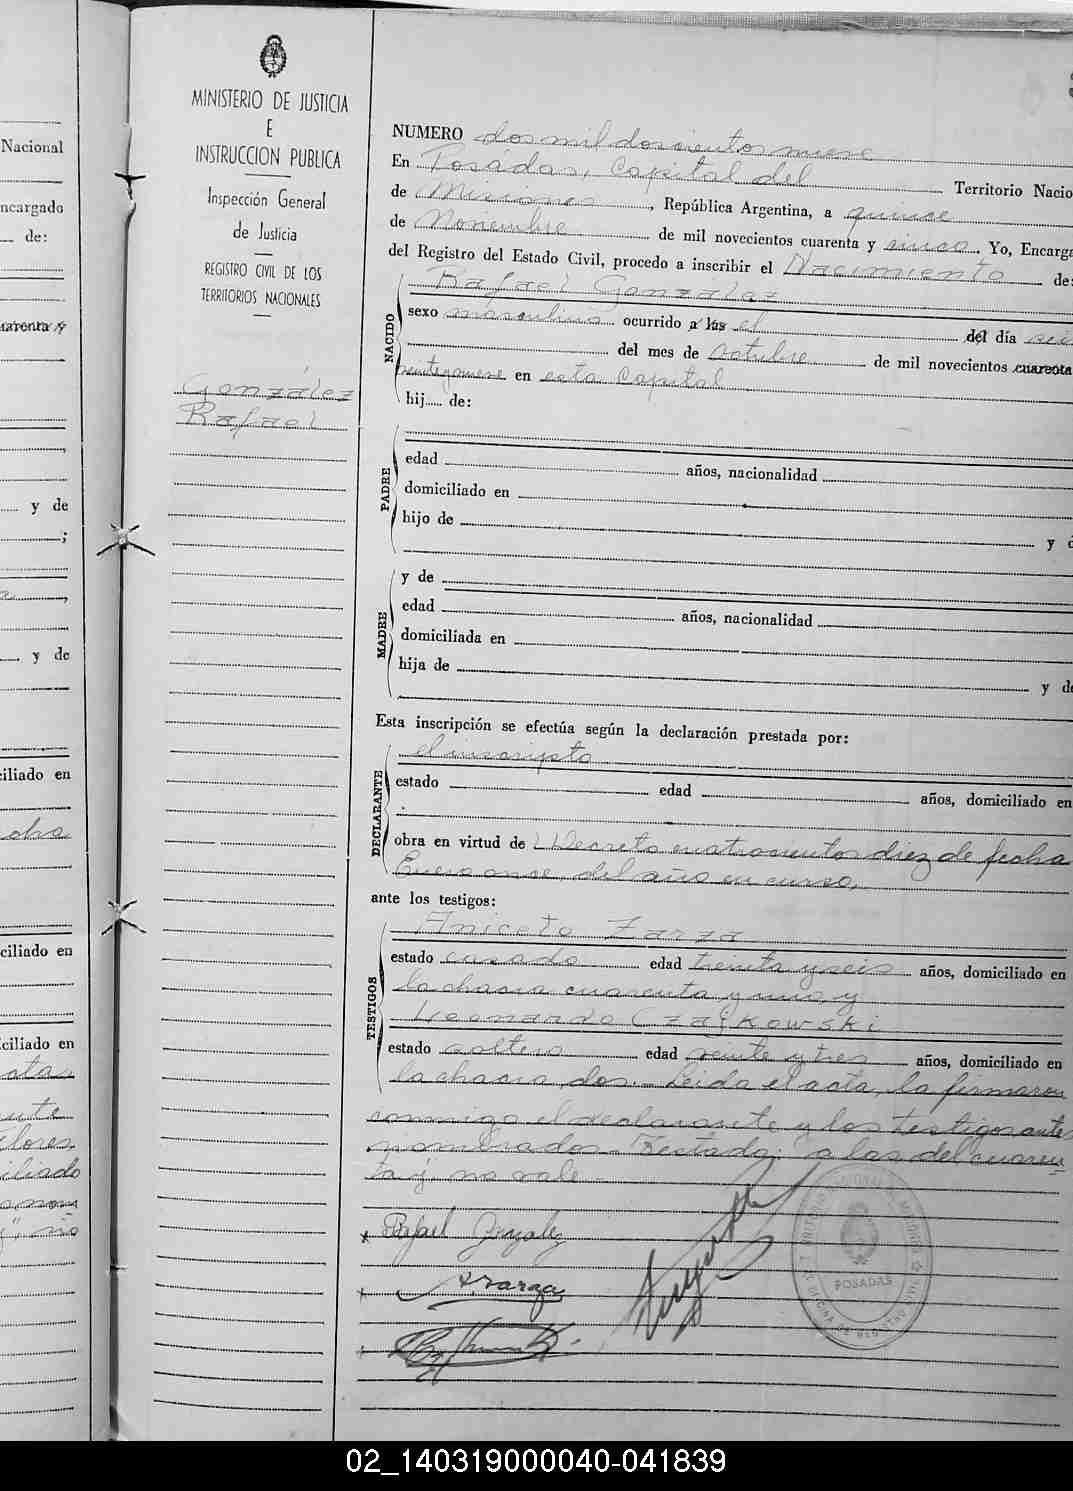 MINISTERIO DE JUSTICIA
E
INSTRUCCION PUBLICA
Inspección General
de Justicia
REGISTRO CIVIL DE LOS
TERRITORIOS NACIONALES
González
Rafael
NUMERO dos mil doscientos nueve
En Posadas, Capital del Territorio Nacio
de Misiones, República Argentina, a quince
de Noviembre de mil novecientos cuarenta y cinco. Yo, Encarga
del Registro del Estado Civil, procedo a inscribir el Nacimiento de:
NACIDO
Rafael González
sexo masculino ocurrido a las el del día
del mes de Octubre de mil novecientos cuarenta
veintegnueve en esta Capital
hij de:
PADRE
edad años, nacionalidad
domiciliado en
hijo de y d
MADRE
y de
edad años, nacionalidad
domiciliada en
hija de y de
Esta inscripción se efectúa según la declaración prestada por:
DECLARANTE
el inscripto
estado edad años, domiciliado en
obra en virtud de Decreto cuatrocientos diez de fecha
Enero once, del año en curso,
ante los testigos:
TESTIGOS
Aniceto Zarza
estado casado edad treinta y seis años, domiciliado en
la chacra cuarenta y uno, y
Leonardo Czajkowski
estado soltero edad veinte y tres años, domiciliado en
la chacra dos. Leida el acta, la firmaron
conmigo el declarante y los testigos ante
nombrados. Testado: a las del cuaren
ta y: no vale.
Rafael González
A. Zarza
POSADAS
Nacional
ncargado
de:
uarenta y
y de
;
,
y de
ciliado en
ocha
ciliado en
ciliado en
ata,
lores,
iliado
02_140319000040-041839